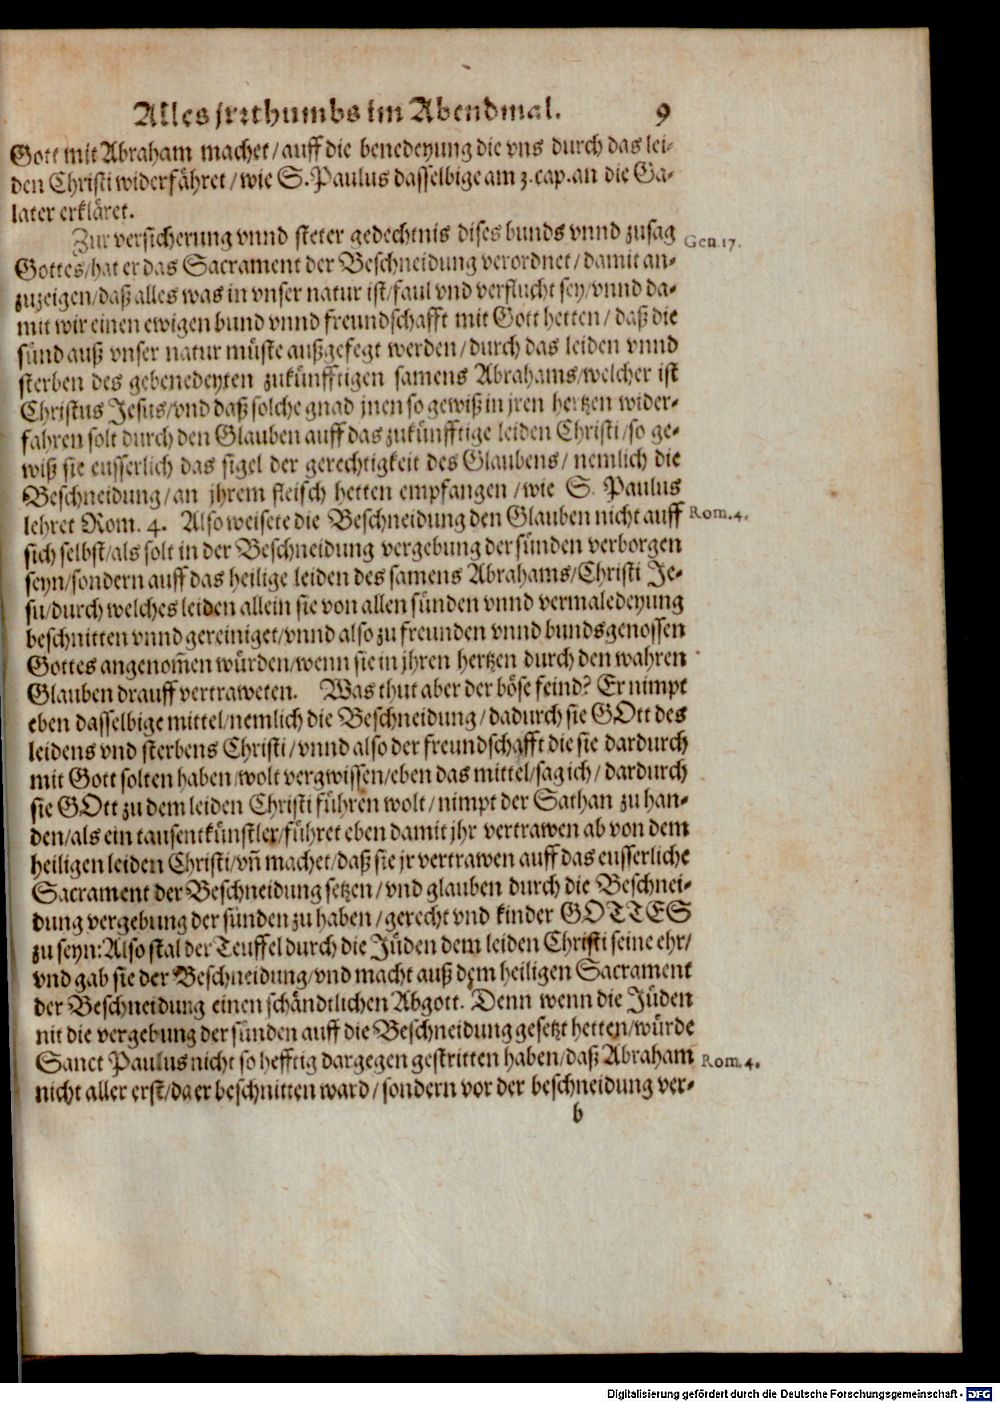 Alles jrrthumbs im Abendmal. 9
Gott mit Abraham machet/auff die benedeyung die vns durch das lei-
den Christi widerfähret/wie S.Paulus dasselbige am 3.cap.an die Ga-
later erkläret.
Zur versicherung vnnd steter gedechtnis dises bunds vnnd zusag Gen.17.
Gottes/hat er das Sacrament der Beschneidung verordnet/damit an-
zuzeigen/daß alles was in vnser natur ist/faul vnd verflucht sey/vnnd da-
mit wir einen ewigen bund vnnd freundschafft mit Gott hetten/daß die
sünd auß vnser natur müste außgefegt werden/durch das leiden vnnd
sterben des gebenedeyten zukünfftigen samens Abrahams/welcher ist
Christus Jesus/vnd daß solche gnad jnen so gewiß in jren hertzen wider-
fahren solt durch den Glauben auff das zukünfftige leiden Christi/so ge-
wiß sie eusserlich das sigel der gerechtigkeit des Glaubens/nemlich die
Beschneidung/an jhrem fleisch hetten empfangen/wie S. Paulus
lehret Rom. 4. Also weisete die Beschneidung den Glauben nicht auff Rom.4.
sich selbst/als solt in der Beschneidung vergebung der sünden verborgen
seyn/sondern auff das heilige leiden des samens Abrahams/Christi Je-
su/durch welches leiden allein sie von allen sünden vnnd vermaledeyung
beschnitten vnnd gereiniget/vnnd also zu freunden vnnd bundsgenossen
Gottes angenom̃en würden/wenn sie in jhren hertzen durch den wahren
Glauben drauff vertraweten. Was thut aber der böse feind? Er nimpt
eben dasselbige mittel/nemlich die Beschneidung/dadurch sie GOtt des
leidens vnd sterbens Christi/vnnd also der freundschafft die sie dardurch
mit Gott solten haben/wolt vergwissen/eben das mittel/sag ich/dardurch
sie GOtt zu dem leiden Christi führen wolt/nimpt der Sathan zu han-
den/als ein tausentkünstler/führet eben damit jhr vertrawen ab von dem
heiligen leiden Christi/vñ machet/daß sie jr vertrawen auff das eusserliche
Sacrament der Beschneidung setzen/vnd glauben durch die Beschnei-
dung vergebung der sünden zu haben/gerecht vnd kinder GOTTES
zu seyn:Also stal der Teuffel durch die Jüden dem leiden Christi seine ehr/
vnd gab sie der Beschneidung/vnd macht auß dem heiligen Sacrament
der Beschneidung einen schändtlichen Abgott. Denn wenn die Jüden
nit die vergebung der sünden auff die Beschneidung gesetzt hetten/würde
Sanct Paulus nicht so hefftig dargegen gestritten haben/daß Abraham Rom.4.
nicht aller erst/da er beschnitten ward/sondern vor der beschneidung ver-
b
Digitalisierung gefördert durch die Deutsche Forschungsgemeinschaft - DFG